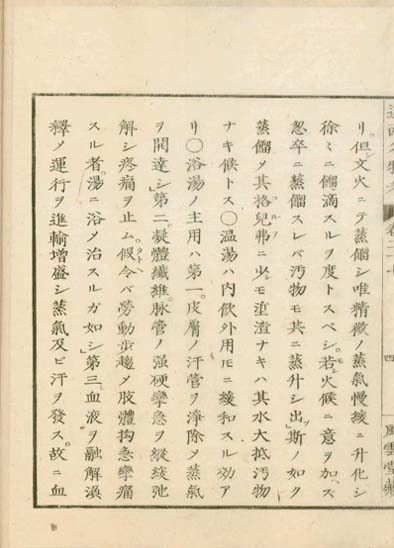 リ但文火ニテ蒸餾シ唯精微ノ蒸氣慢緩ニ升化シ
徐ミニ餾滴スルヲ度トスベシ若モシ火候ニ意ヲ加ズ
怱卒ニ蒸餾スレバ汚物モ共ニ蒸升シ出ヅ斯ノ如ク
蒸餾メ其格兒弗コルフニ少モ渣滓ナキハ其水大抵汚物
ナキ候トス○温湯ハ内飲外用モニ緩和スル効ア
リ○浴湯ノ主用ハ第一皮膚ノ汗管ヲ淨除メ蒸氣
ヲ開達シ第二凝體纖維脉管ノ强硬攣急ヲ縱緩弛
解シ疼痛ヲ止ム假令タトヘバ勞動歩趨メ肢體拘急攣痛
スル者湯ニ浴メ治スルガ如シ第三血液ヲ融解渙
釋メ運行ヲ進輸增盛シ蒸氣及ビ汗ヲ發ス故ニ血
四
風雲堂藏